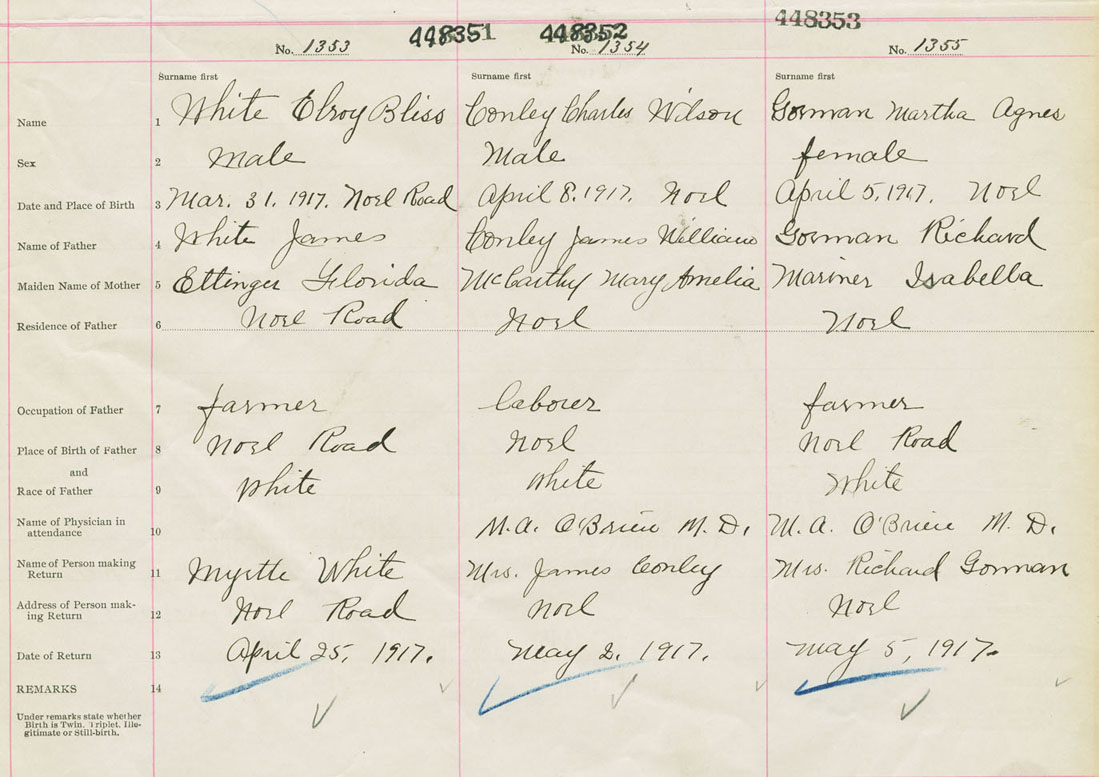 448351 448352 448353
No. 1353 No. 1354 No. 1355
Surname first Surname first Surname first
Name 1 White Elroy Bliss Conley Charles Wilson Gorman Martha Agnes
Sex 2 Male Male female
Date and Place of Birth 3 Mar. 31. 1917. Noel Road April 8. 1917. Noel April 5, 1917. Noel
Name of Father 4 White James Conley James William Gorman Richard
Maiden Name of Mother 5 Ettinger Florida McCarthy Mary Amelia Mariner Isabella
Residence of Father 6 Noel Road Noel Noel
Occupation of Father 7 farmer labourer farmer
Place of Birth of Father 8 Noel Road Noel Noel Road
and
Race of Father 9 White White White
Name of Physician in
attendance 10 M.A. O'Brien M.D. M.A. O'Brien M.D.
Name of Person making
Return 11 Myrtle White Mrs. James Conley Mrs. Richard Gorman
Address of Person mak-
ing Return 12 Noel Road Noel Noel
Date of Return 13 April 25, 1917. May 2. 1917. May 5, 1917.
REMARKS 14
Under remarks state whether
Birth is Twin. Triplet. Ille-
gitimate or Still-birth.